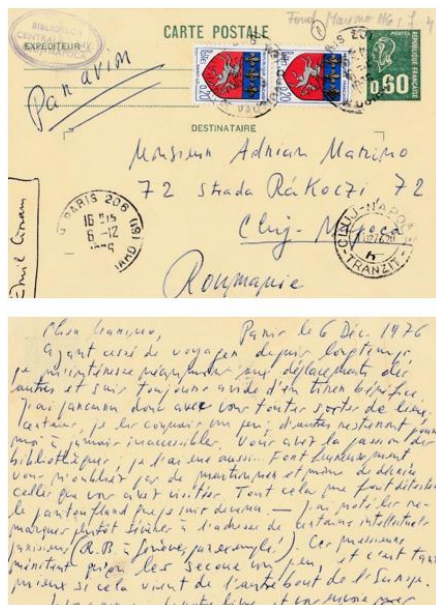 BIBLIOTECA
CENTRALA
CARTE POSTALE
Fond Marino
EXPÉDITEUR
Par avion
0,20
0,20
POSTES
REPUBLIQUE FRANÇAISE
0,60
DESTINATAIRE
Monsieur Adrian Marino
72 Strada Rákoczi 72
Cluj-Napoca
Roumanie
PARIS 206
16 H15
6-12
CLUJ-NAPOCA
TRANZIT
Emil Cioran
Cher Marino, Paris le 6 Déc. 1976
Ayant cessé de voyager depuis longtemps,
je m'intéresse aux déplacements des
autres et suis toujours avide d'en tirer bénéfice.
J'ai parcouru donc avec vous toutes sortes de lieux.
Certains, je les connais un peu; d'autres resteront pour
moi à jamais inaccessibles. Vous avez la passion des
bibliothèques, je l'ai eue aussi. Fort heureusement
vous n'oubliez pas de mentionner et même de décrire
celles que vous avez visitées. Tout cela me fait
le pantouflard que je suis devenu. — J'ai noté les re-
marques plutôt sévères à l'adresse de certains intellectuels
parisiens (R.B. à Genève, par exemple!). Ces messieurs
méritent qu'on les secoue un peu, et c'est tant
mieux si cela vient de l'autre bout de l'Europe.
votre livre et